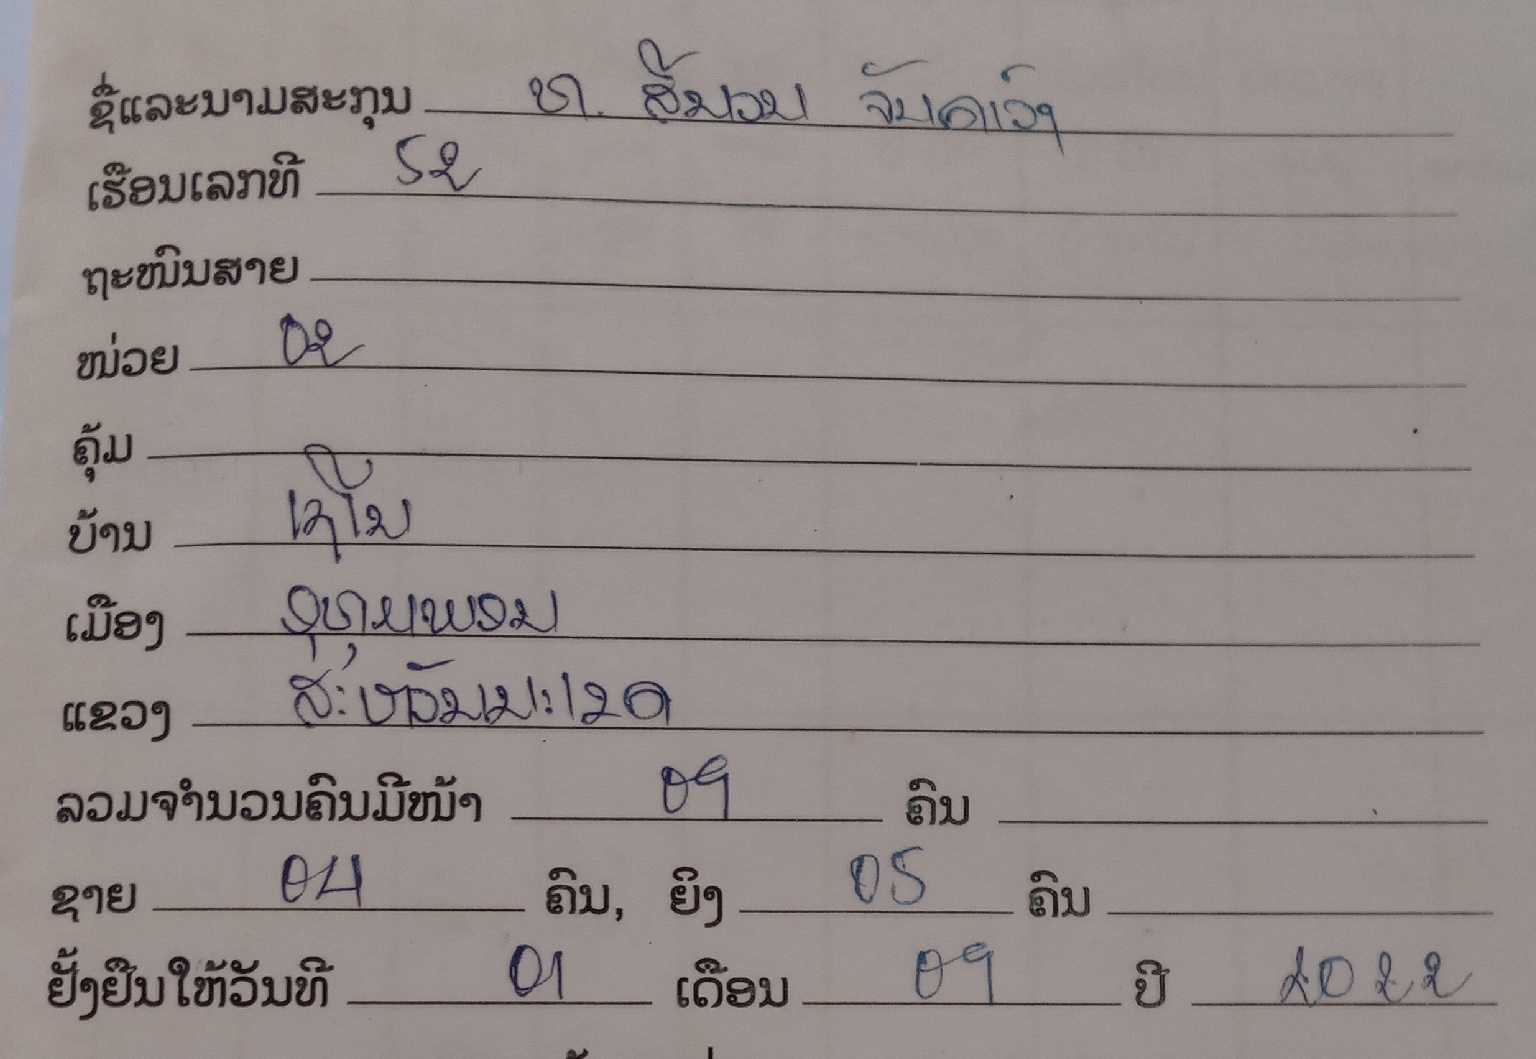 ຊື່ແລະນາມສະກຸນ ທ. ສີນວນ
ເຮືອນເລກທີ 52
ຖະໜົນສາຍ
ໜ່ວຍ 02
ຄຸ້ມ
ບ້ານ ເຊໂນ
ເມືອງ ອຸທຸມພອນ
ແຂວງ ສະຫວັນນະເຂດ
ລວມຈຳນວນຄົນມີໜ້າ 09 ຄົນ
ຊາຍ 04 ຄົນ, ຍິງ 05 ຄົນ
ຢັ້ງຢືນໃຫ້ວັນທີ 01 ເດືອນ 09 ປີ 2022